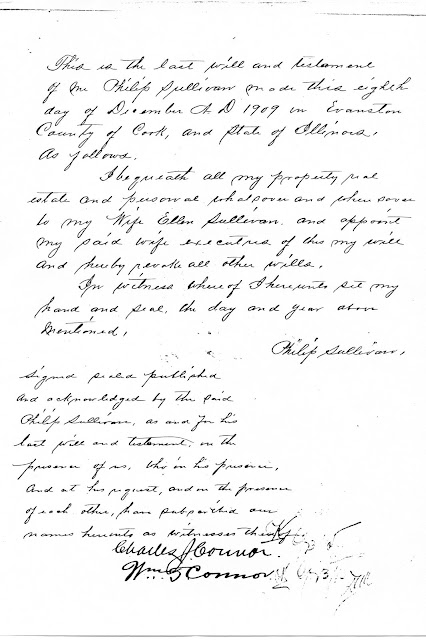 This is the last will and testament
of Me Philip Sullivan made this eighth
day of December A D 1909 in Evanston
County of Cook, and State of Illinois,
As follows.
I bequeath all my property real
estate and personal whatsover and wher sover
to my Wife Ellen Sullivan. and appoint
my said wife executres of this my will
and herby revoke all other wills.
In witness where of I hereunto set my
hand and seal, the day and year above
mentioned,
Philip Sullivan,
Signed seald published
and acknowledged by the said
Philip Sullivan, as and for his
last will and testament, in the
presence of us, who in his presence,
And at his request, and in the presence
of each other, have subscribed our
names hereunto as witnesses
Charles J. Connor.
Wm Connor